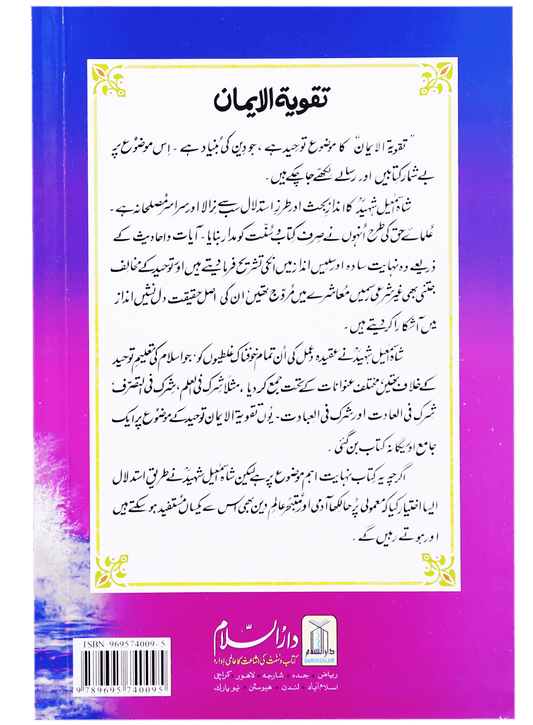 تقویۃ الایمان
”تقویۃ الایمان“ کا موضوع توحید ہے، جو دین کی بُنیاد ہے۔ اِس موضوع پر
بے شمار کتابیں اور رسالے لکھّے جا چکے ہیں۔
شاہ اسمٰعیل شہیدؒ کا اندازِ بحث اور طرزِ استدلال سب سے نرالا اور سراسر مُصلحانہ ہے۔
عُلمائے حق کی طرح اُنہوں نے صِرف کتاب و سُنّت کو مدار بنایا۔ آیات و احادیث کے
ذریعے وہ نہایت سادہ اور سلیس انداز میں انکی تشریح فرما دیتے ہیں اور توحید کے مخالِف
جتنی بھی غیر شرعی رسمیں مُعاشرے میں مُروّج تھیں اُن کی اصل حقیقت دل نشیں انداز
میں آشکارا کر دیتے ہیں۔
شاہ اسمٰعیل شہیدؒ نے عقیدہ و عمل کی اُن تمام خوفناک غلطیوں کو، جو اسلام کی تعلیمِ توحید
کے خلاف تھیں مختلف عنوانات کے تحت جمع کر دیا، مثلاً شرک فی العلم، شرک فی التصرّف
شرک فی العادت اور شرک فی العبادت۔ یُوں تقویۃ الایمان توحید کے موضوع پر ایک
جامع اور یگانہ کتاب بن گئی۔
اگرچہ یہ کتاب نہایت اہم موضوع پر ہے لیکن شاہ اسمٰعیل شہیدؒ نے طریقِ استدلال
ایسا اختیار کیا کہ معمولی پڑھا لکھا آدمی اور مُتبحّر عالِم دین بھی اس سے یکساں مُستفید ہو سکتے ہیں
اور ہوتے رہیں گے۔
دارُالسّلام
کتاب و سُنّت کی اشاعت کا عالمی ادارہ
ریاض ۔ جدہ ۔ شارجہ ۔ لاہور ۔ کراچی
اسلام آباد ۔ لندن ۔ ہیوسٹن ۔ نیو یارک
دارالسلام
DARUSSALAM
ISBN 969574009-5
9 789695 740095